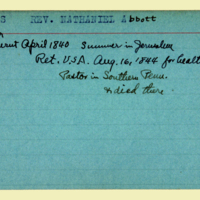 S REV. NATHANIEL Abbott
April 1840 Summer in Jerusalem
Ret. U.S.A. Aug. 16, 1844 for health
Pastor in Southern Penn.
& died there.